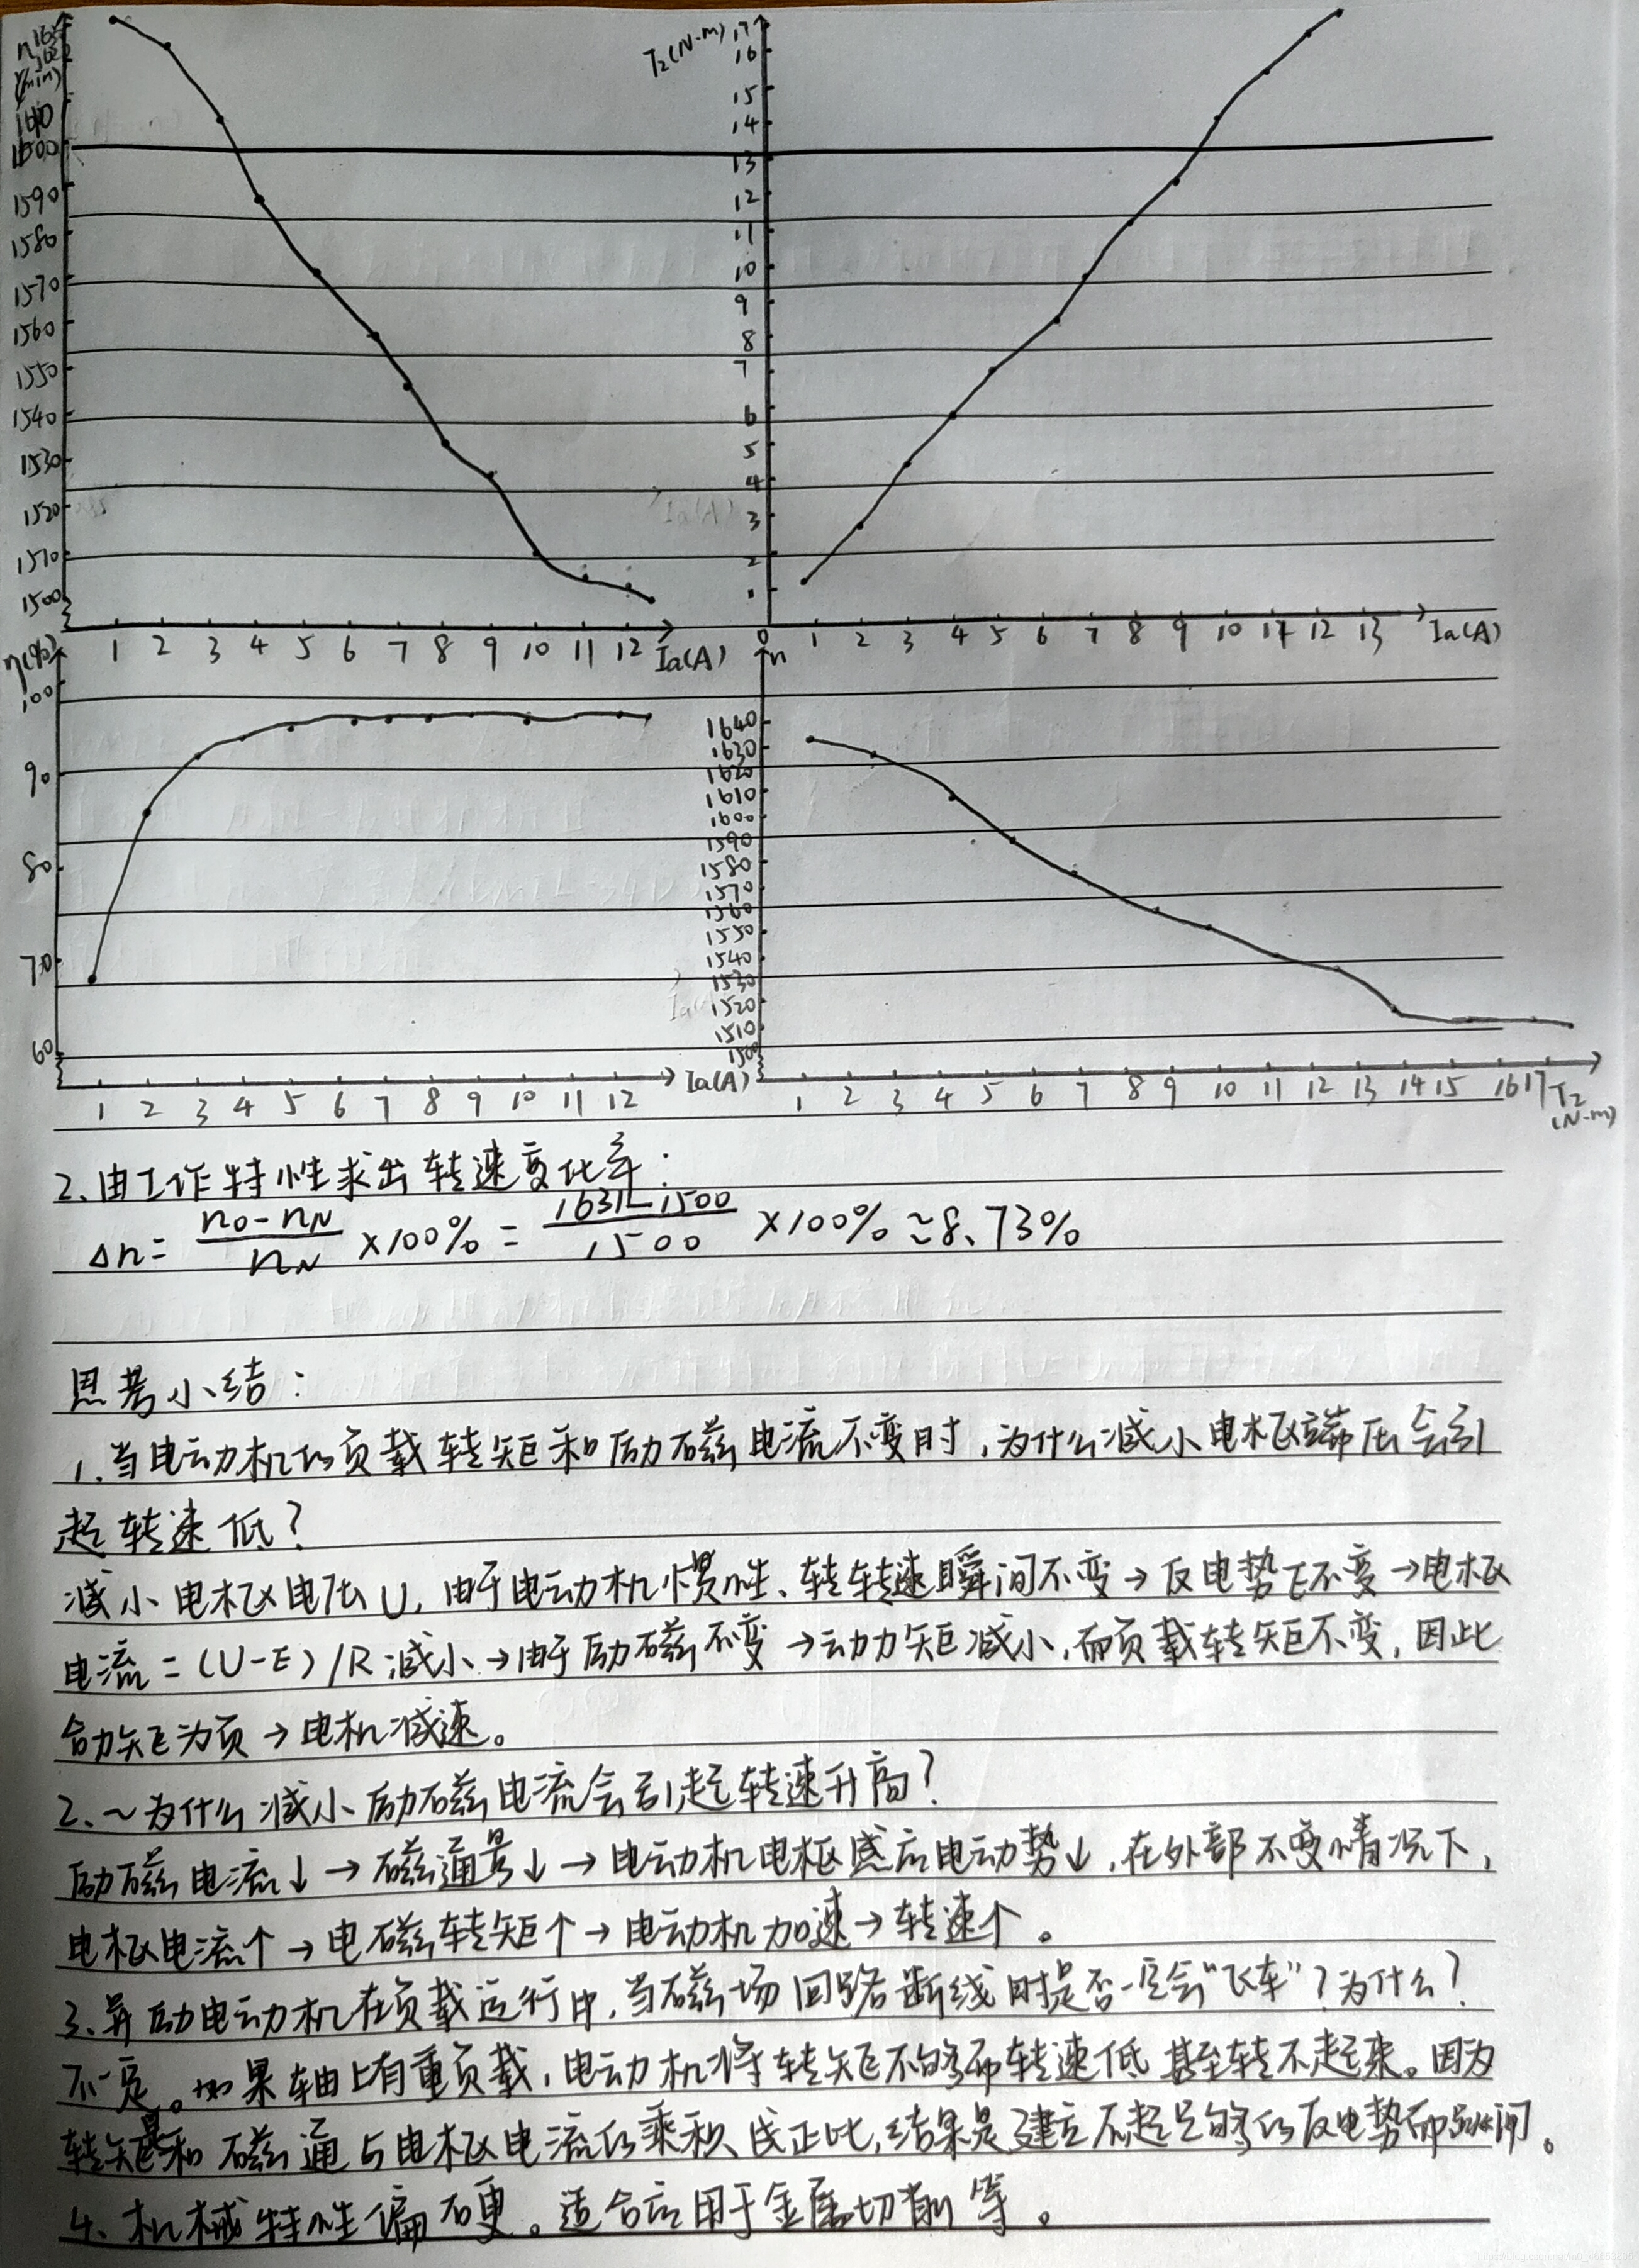 n
(r/min)
1610
1600
1590
1580
1570
1560
1550
1540
1530
1520
1510
1500
1 2 3 4 5 6 7 8 9 10 11 12 Ia(A)
T₂(N·m) 17
16
15
14
13
12
11
10
9
8
7
6
5
4
3
2
0 1 2 3 4 5 6 7 8 9 10 11 12 13 Ia(A)
η(%)
100
90
80
70
60
1 2 3 4 5 6 7 8 9 10 11 12 Ia(A)
n
1640
1630
1620
1610
1600
1590
1580
1570
1560
1550
1540
1530
1520
1510
1500
1 2 3 4 5 6 7 8 9 10 11 12 13 14 15 16 17 T₂
(N·m)
2、由工作特性求出转速变化率:
Δn= (n₀-nN)/nN ×100% = (1631-1500)/1500 ×100% ≈8.73%
思考小结:
1、当电动机的负载转矩和励磁电流不变时,为什么减小电枢端压会引
起转速低?
减小电枢电压U,由于电动机惯性、转转速瞬间不变→反电势E不变→电枢
电流=(U-E)/R减小→由于励磁不变→动力矩减小,而负载转矩不变,因此
合力矩为负→电机减速。
2、~为什么减小励磁电流会引起转速升高?
励磁电流↓→磁通量↓→电动机电枢感应电动势↓,在外部不变情况下,
电枢电流↑→电磁转矩↑→电动机加速→转速↑。
3、并励电动机在负载运行中,当磁场回路断线时是否一定会“飞车”?为什么?
不一定。如果轴上有重负载,电动机将转矩不够而转速低甚至转不起来。因为
转矩和磁通与电枢电流的乘积成正比,结果是建立不起足够的反电势而
4、机械特性偏硬。适合应用于金属切削等。